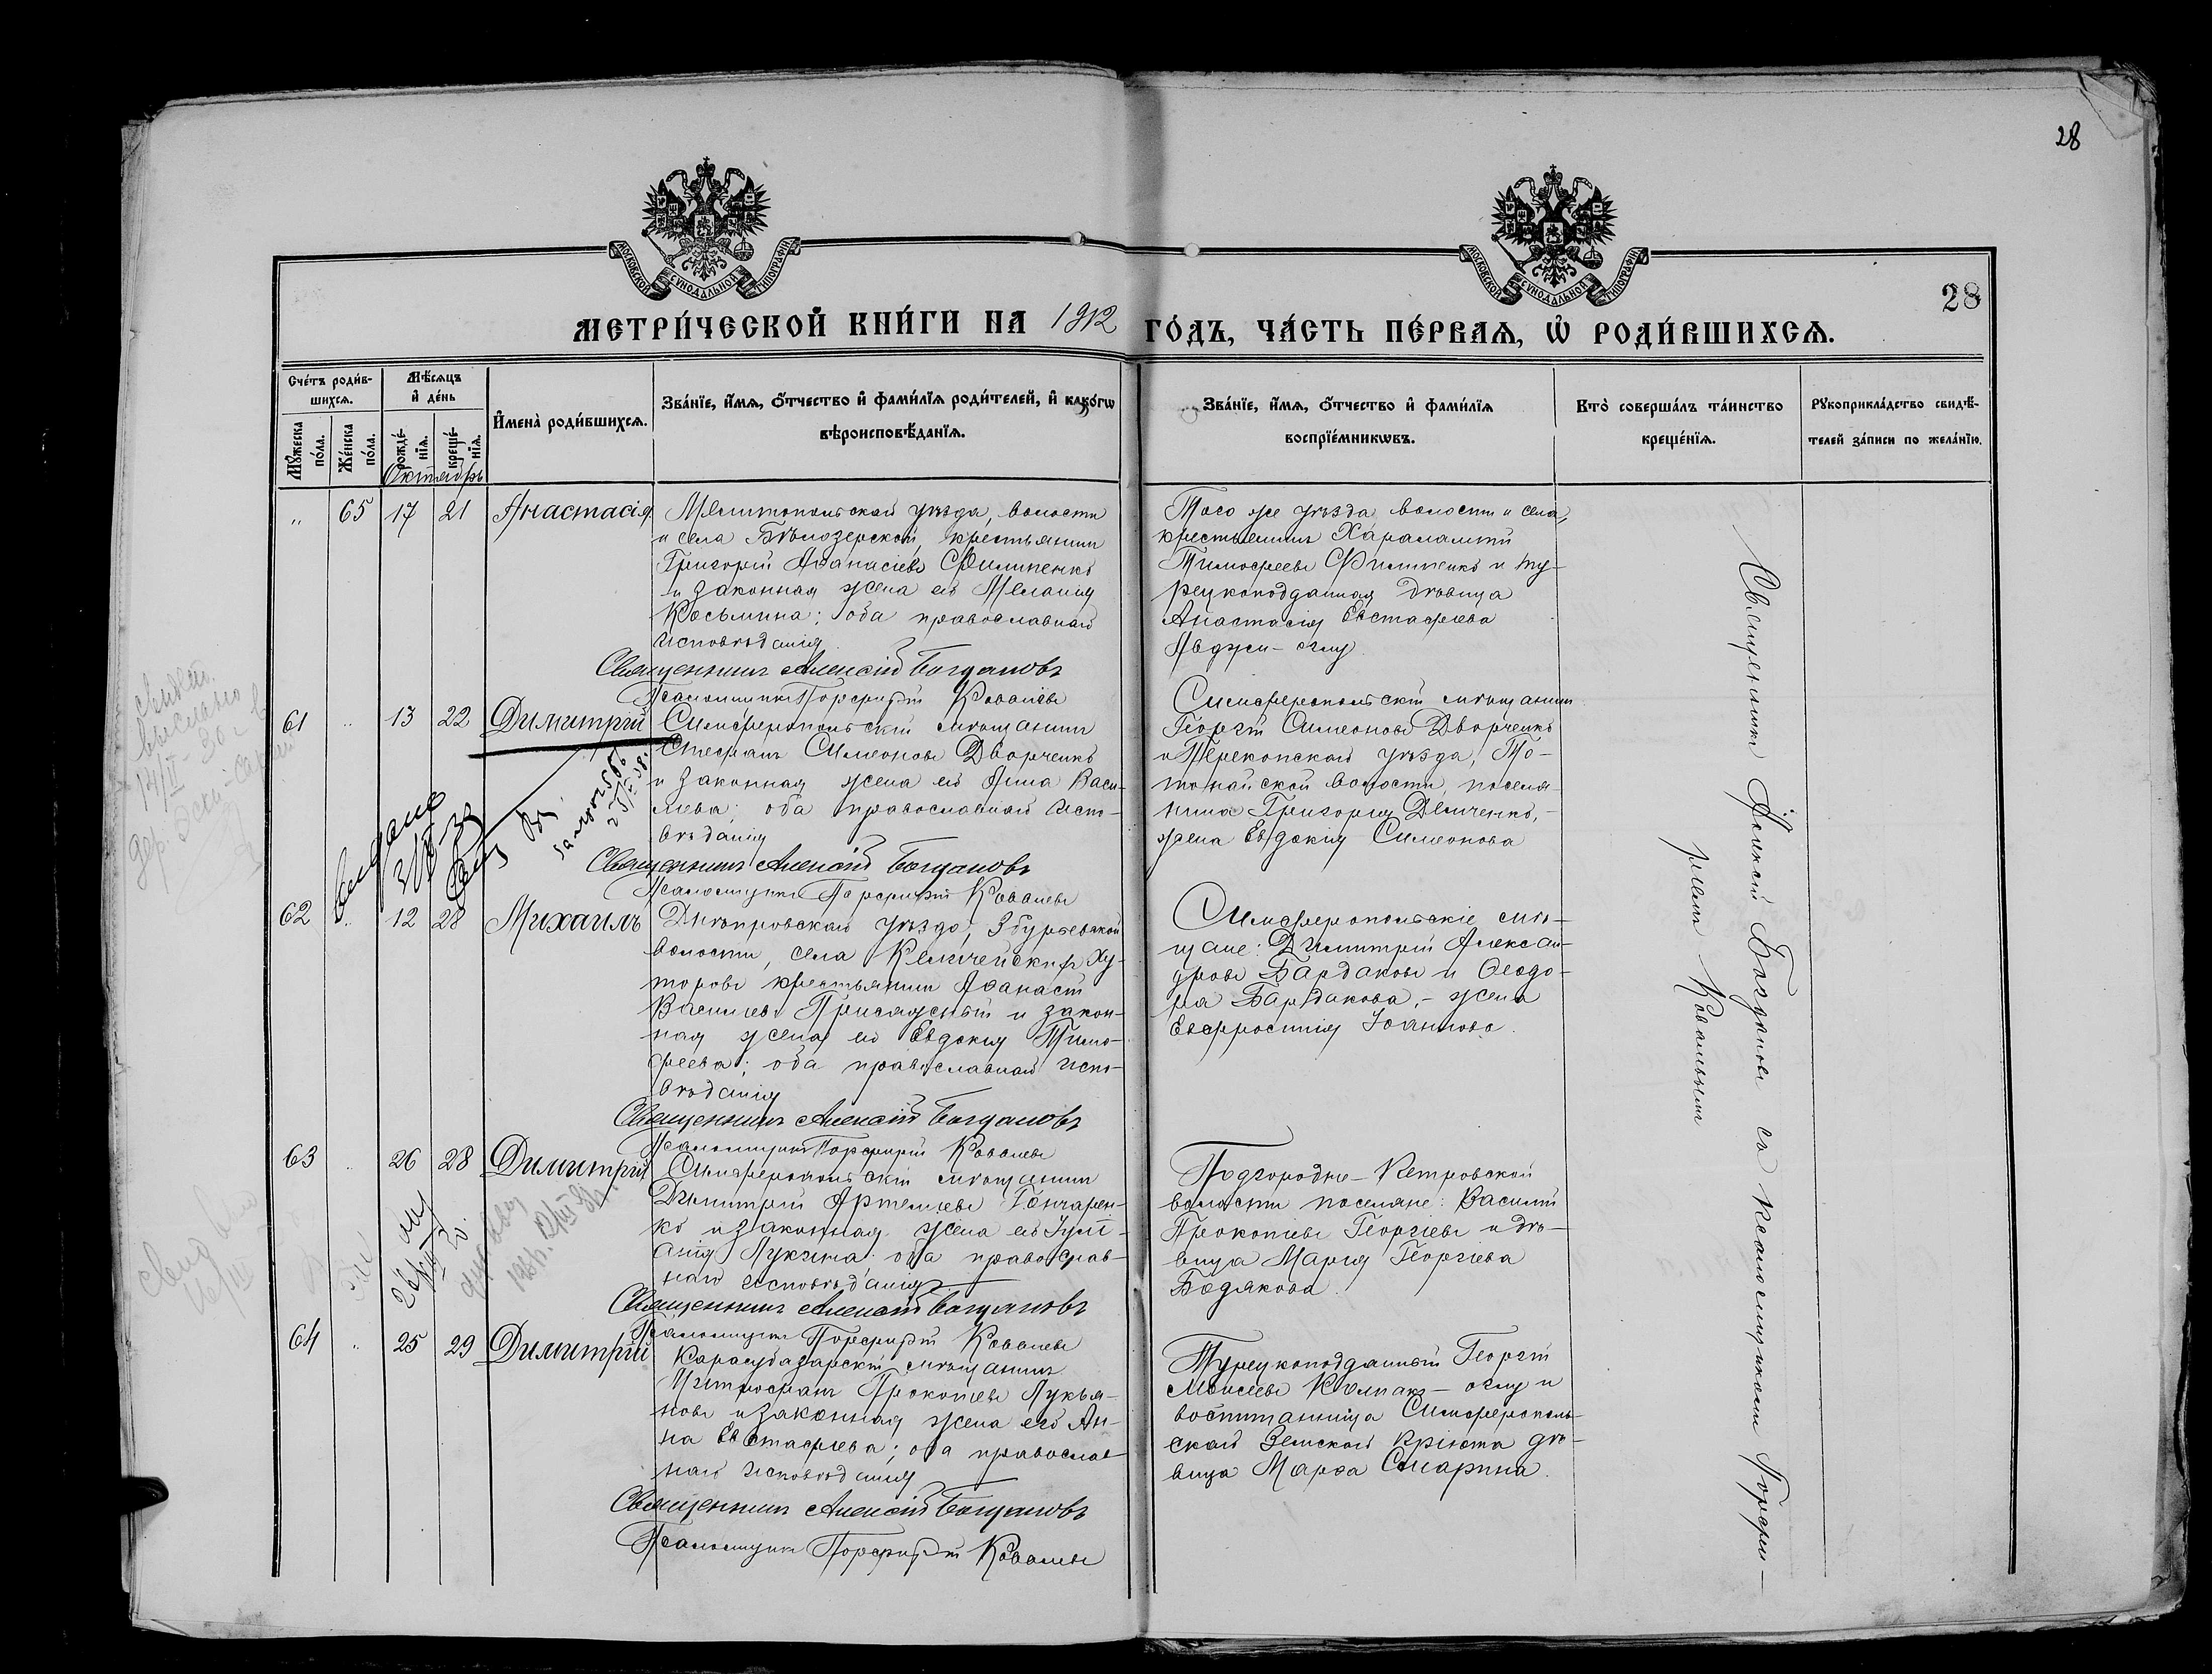 28
МОСКОВСКОЙ СУНОДАЛЬНОЙ ТИПОГРАФІИ
МОСКОВСКОЙ СУНОДАЛЬНОЙ ТИПОГРАФІИ
28
МЕТРИ́ЧЕСКОЙ КНИ́ГИ НА 1912 ГО́ДЪ, ЧА́СТЬ ПЕ́РВАѦ, Ѡ҆ РОДИ́ВШИХСѦ.
Сче́тъ роди́в-
шихсѧ.
Мꙋ́жеска по́ла.
Же́нска по́ла.
Мѣ́сѧцъ
и҆ де́нь
рожде́-
нїѧ.
креще́-
нїѧ.
Октябрь
И҆мена̀ роди́вшихсѧ.
Зва́нїе, и҆́мѧ, о҆́тчество и҆ фами́лїѧ роди́телей, и҆ како́гѡ
вѣроисповѣ́данїѧ.
Зва́нїе, и҆́мѧ, о҆́тчество и҆ фами́лїѧ
воспрїе́мникѡвъ.
Кто̀ соверша́лъ та́инство
креще́нїѧ.
Рꙋкоприкла́дство свидѣ́-
телей за́писи по жела́нїю.
" 65 17 21 Анастасія
Мелитопольскаго уѣзда, волости
и села Бѣлозерской, крестьянинъ
Григорій Аѳанасіевъ Филипенко
и законная жена его Меланія
Косьмина; оба православнаго
исповѣданія
Священникъ Алексій Богдановъ
Псаломщикъ Порфирій Ковалевъ
Того же уѣзда волости и села,
крестьянинъ Харалампій
Тимофеевъ Филипенко и ту-
рецкоподданная дѣвица
Анастасія Евстафіева
Авджи-оглу
61 " 13 22 Димитрій
Симферопольскій мѣщанинъ
Стефанъ Симеоновъ Дворченко
и законная жена его Анна Васи-
лиева; оба православнаго испо-
вѣданія
Священникъ Алексій Богдановъ
Псаломщикъ Порфирій Ковалевъ
Симферопольскій мѣщанинъ
Георгій Симеоновъ Дворченко
и Перекопскаго уѣзда, То-
тонайской волости, поселя-
нина Григорія Демченко,-
жена Евдокія Симеонова
62 " 12 28 Михаилъ
Днѣпровскаго уѣзда, Збурьевской
волости, села Келигейскихъ Ху-
торовъ крестьянинъ Аѳанасій
Васильевъ Присяжный и закон-
ная жена его Евдокія Тимо-
феева; оба православнаго испо-
вѣданія
Священникъ Алексій Богдановъ
Псаломщикъ Порфирій Ковалевъ
Симферопольскіе мѣ-
щане: Димитрій Алексан-
дровъ Бардаковъ и Ѳеодо-
ра Бардакова,- жена
Евфросинія Іоаннова.
63 " 26 28 Димитрій
Симферопольскій мѣщанинъ
Димитрій Артемьевъ Гончарен-
ко и законная жена его Іулі-
анія Лукина; оба православ-
наго исповѣданія
Священникъ Алексій Богдановъ
Псаломщикъ Порфирій Ковалевъ
Подгородне-Петровской
волости поселяне: Василій
Прокопіевъ Георгіевъ и дѣ-
вица Марія Георгіева
Бодякова.
64 " 25 29 Димитрій
Карасубазарскій мѣщанинъ
Митрофанъ Прокопіевъ Лукья-
новъ и законная жена его Ан-
на Евстафіева; оба православ-
наго исповѣданія
Священникъ Алексій Богдановъ
Псаломщикъ Порфирій Ковалевъ
Турецкоподданный Георгій
Моисеевъ Колпакъ-оглу и
воспитанница Симферополь-
скаго Земскаго пріюта дѣ-
вица Марѳа Смарина.
Священникъ Алексій Богдановъ съ псаломщикомъ Порфи-
ріемъ Ковалевымъ